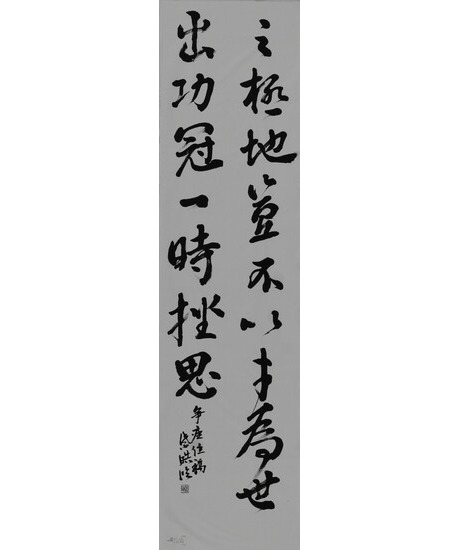 之極地豈不以才為世
出功冠一時挫思
爭座位稿